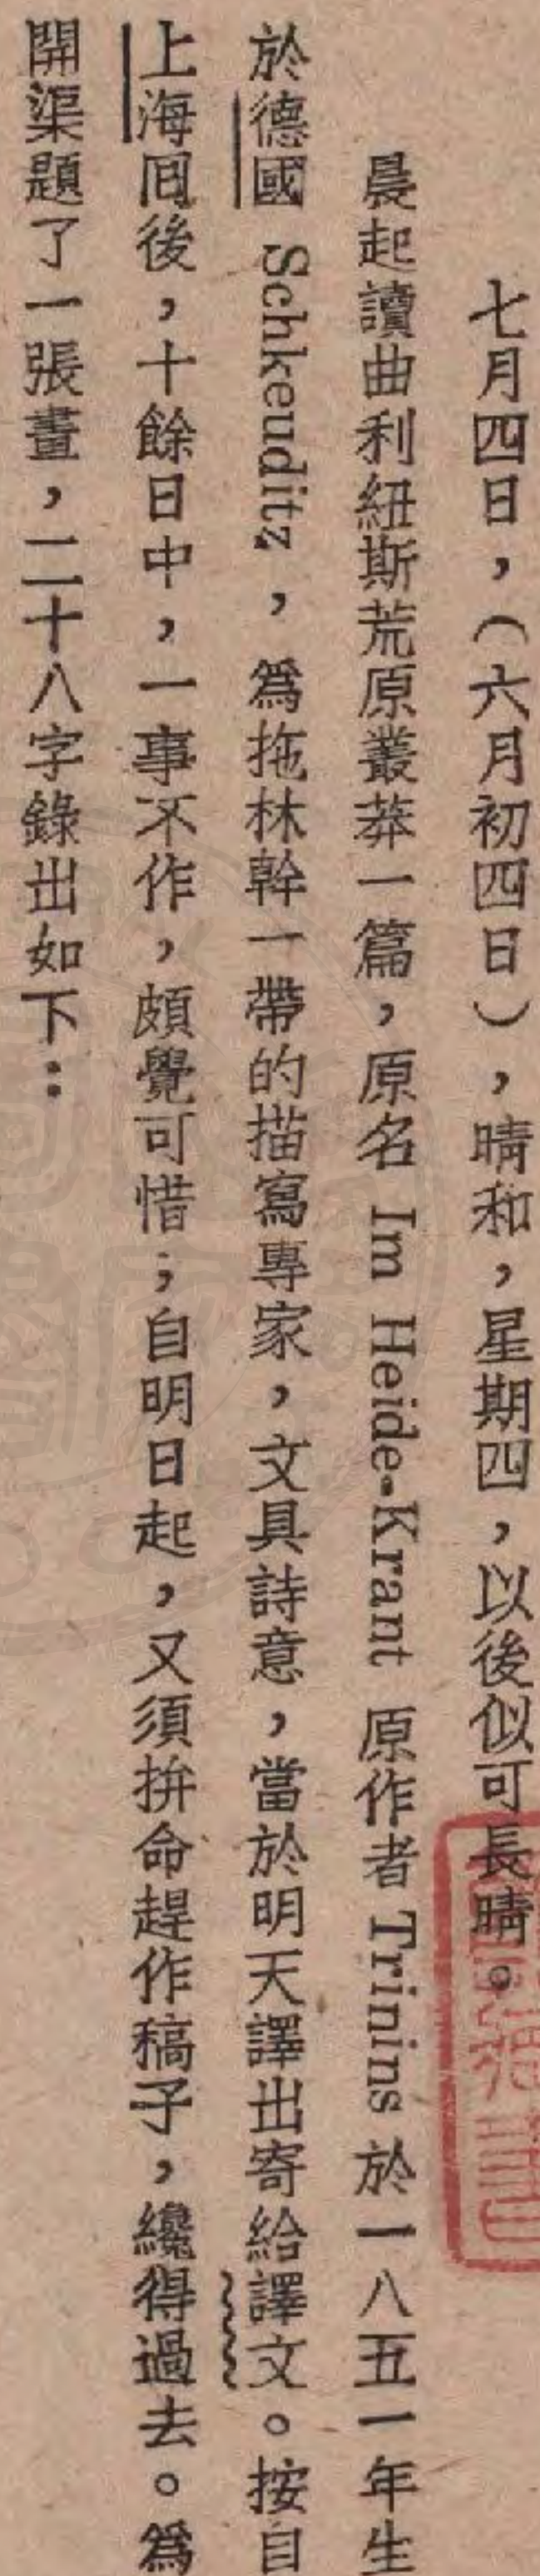 七月四日，（六月初四日），晴和，星期四，以後似可長晴。
晨起讀曲利紐斯荒原叢莽一篇，原名 Im Heide-Krant 原作者 Trinins 於一八五一年生
於德國 Schkeuditz，爲拖林幹一帶的描寫專家，文具詩意，當於明天譯出寄給譯文。按自
上海回後，十餘日中，一事不作，頗覺可惜；自明日起，又須拚命趕作稿子，纔得過去。爲
開渠題了一張畫，二十八字錄出如下：